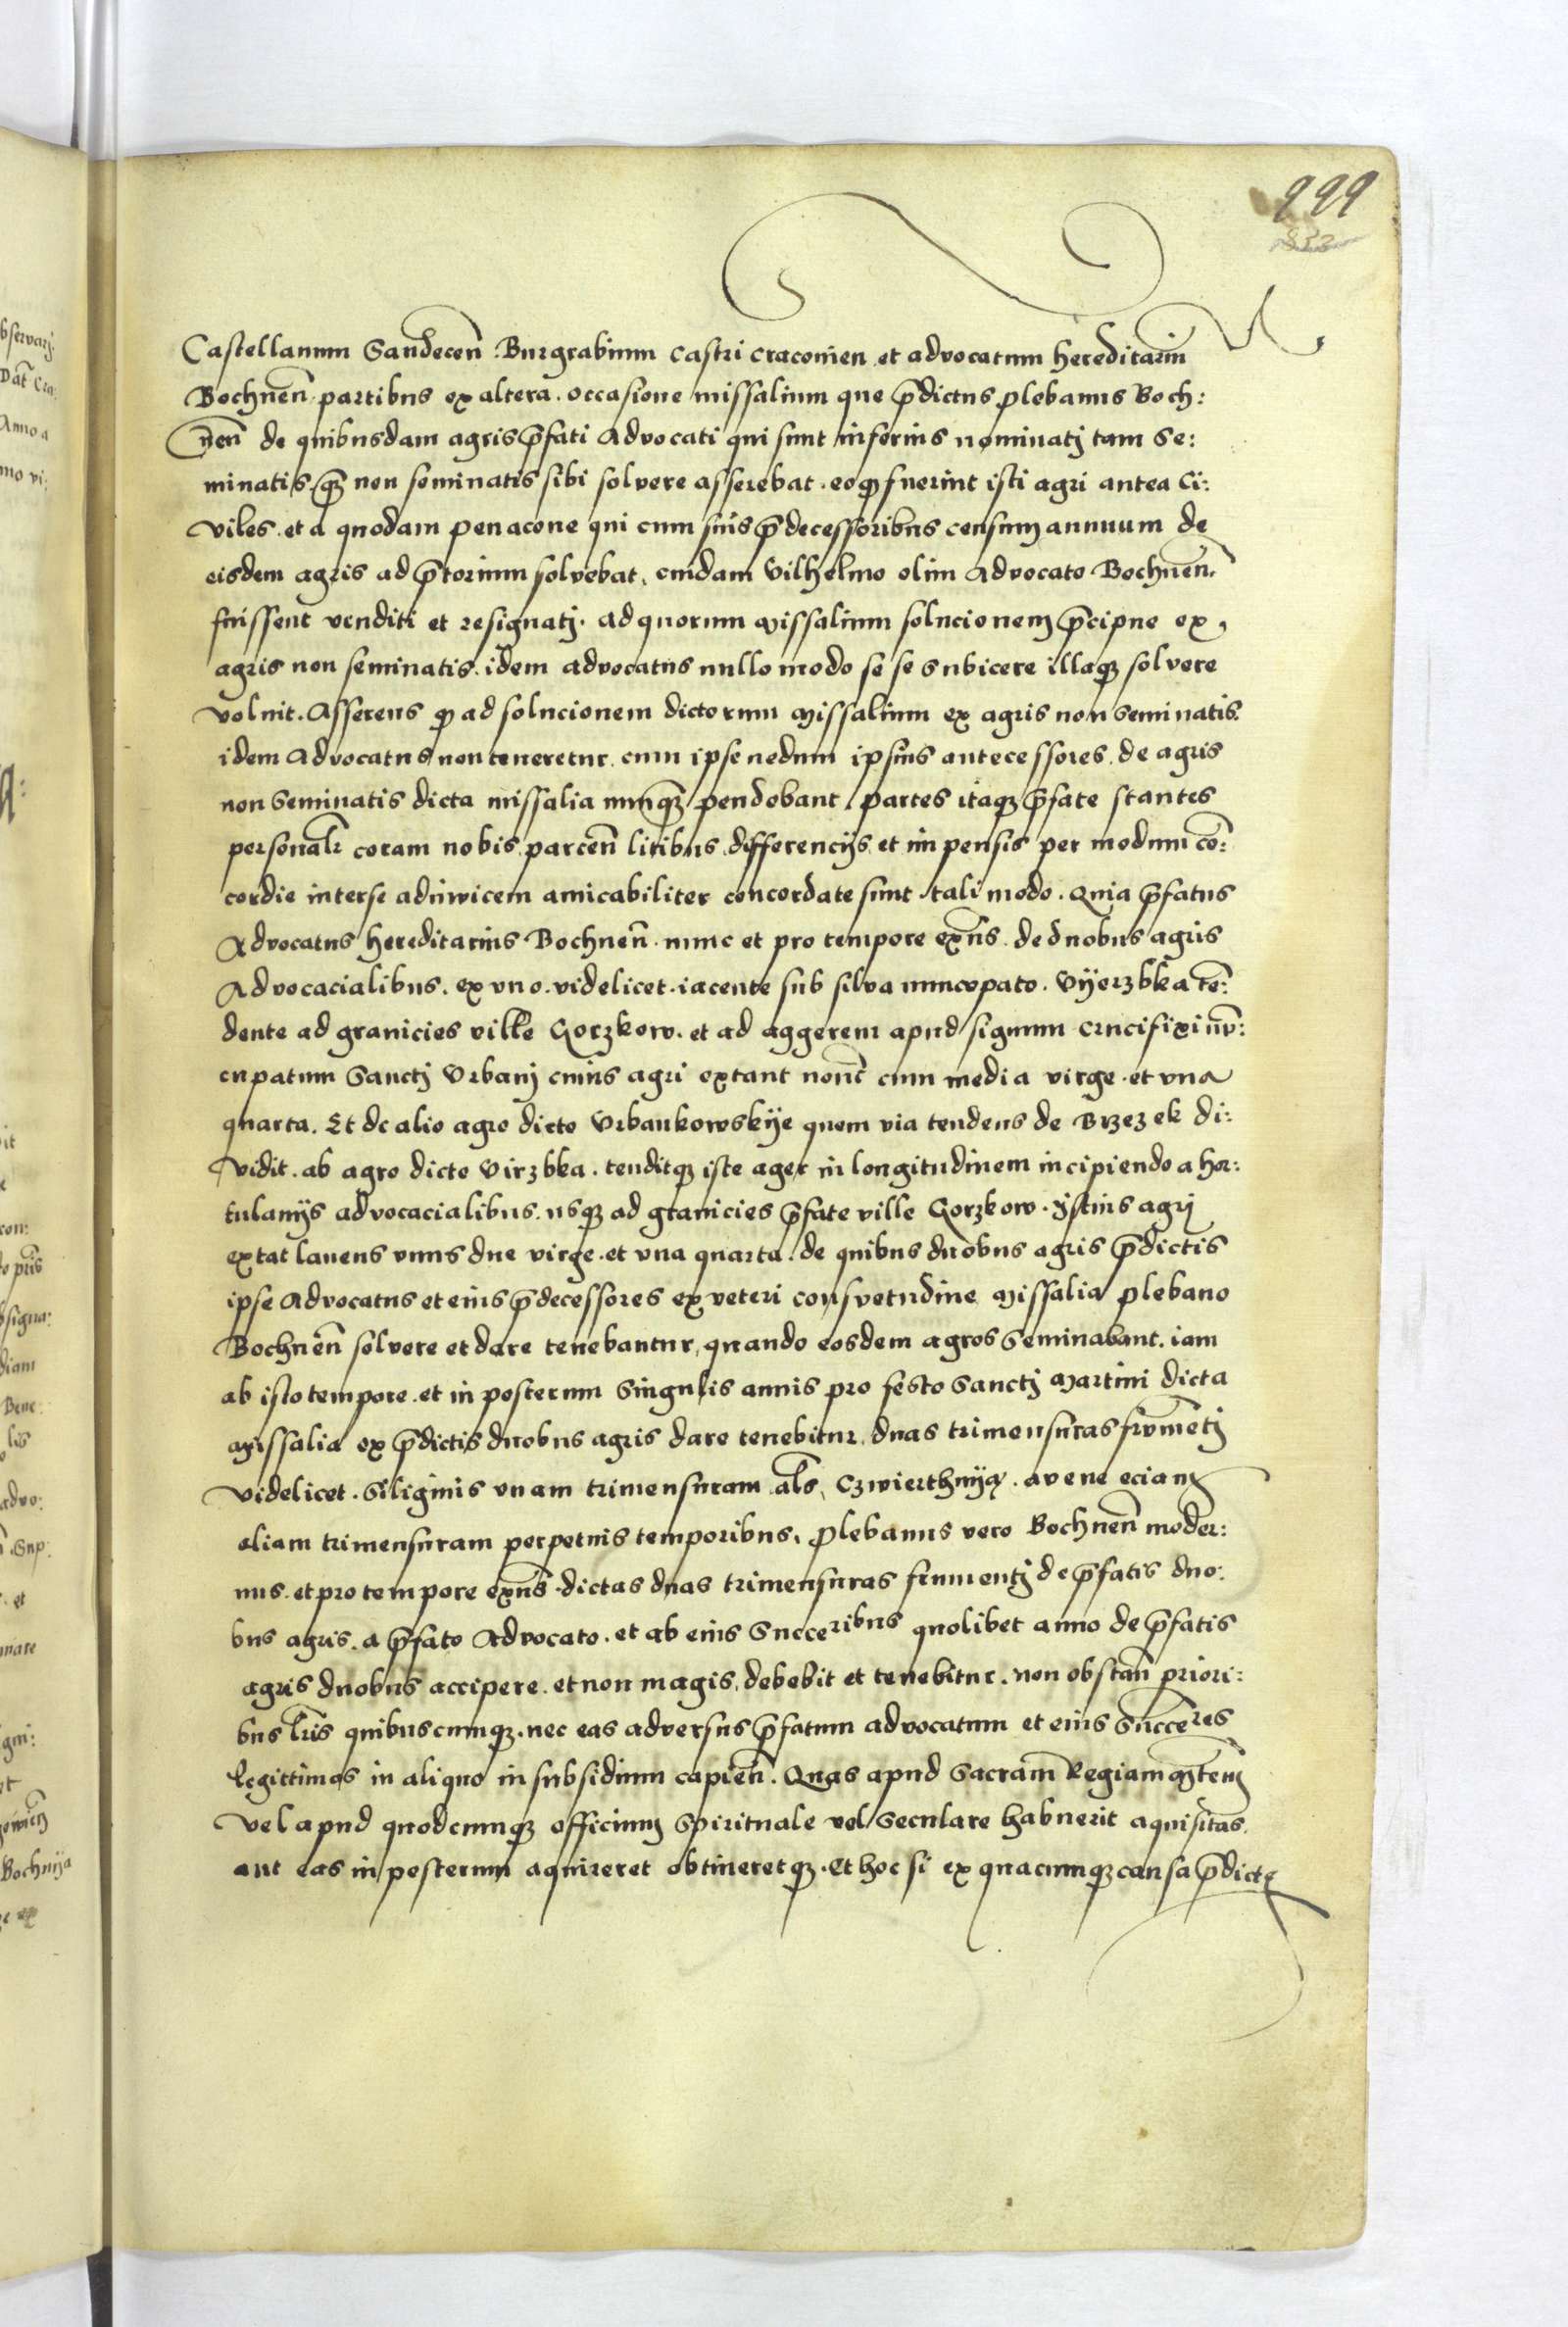 999
832
Castellanum Sandecen̄ Burgrabium castri cracovien et advocatum hereditariū
Bochnen̄ partibus ex altera. occasione missalium que p̄dictus plebanus Boch:
nen̄ de quibusdam agris p̄fati Advocati qui sunt inferius nominatj tam Se:
minatis qȝ non seminatis sibi solvere asserebat. eoqꝫ fuerint isti agri antea Ci:
viles. et a quodam penacone qui cum suis p̄decessoribus censum annuum de
eisdem agris ad p̄torium solvebat, cuidam Vilhelmo olim Advocato Bochnen̄.
fuissent venditi et resignatj. ad quorum missalium solucionem p̄cipue ex
agris non seminatis. idem advocatus nullo modo se se subicere illaqȝ solvere
voluit. Asserens ꝙ ad solucionem dictorum missalium ex agris non seminatis.
idem Advocatus non teneretur. cum ipse nedum ipsius antecessores. de agris
non Seminatis dicta missalia nunqȝ pendebant. partes itaqȝ p̄fate stantes
personalr̄ coram nobis parcen̄ litibus differencijs et impensis per modum cō:
cordie inter se adinvicem amicabiliter concordate sunt tali modo. Quia p̄fatus
Advocatus hereditarius Bochnen̄. nunc et pro tempore exn̄s. de duobus agris
Advocacialibus. ex uno. videlicet. iacente sub silva nuncupato. Vijerzbka tē:
dente ad granicies ville Gorzkow. et ad aggerem apud signum crucifixi nū:
cupatum Sanctj Vrbanj cuius agri extant novē cum media virge. et vna
quarta. Et de alio agro dicto Vrbankowskije quem via tendens de Brzezek di:
vidit. ab agro dicto Virzbka. tenditqȝ iste ager in longitudinem incipiendo a hor:
tulanijs advocacialibus. usqȝ ad granicies p̄fate ville Gorzkow. Istius agrj
extat laneus vnus due virge. et vna quarta. de quibus duobus agris p̄dictis
ipse Advocatus et eius p̄decessores ex veteri consvetudine missalia plebano
Bochnen̄ solvere et dare tenebantur, quando eosdem agros Seminabant. iam
ab isto tempore. et in posterum singulis annis pro festo Sanctj Martini dicta
missalia ex p̄dictis duobus agris dare tenebitur. duas trimensuras frūmētj
videlicet. Siliginis vnam trimensuram als̄. Czwierthniją. avene eciam
aliam trimensuram perpetuis temporibus. Plebanus vero Bochnen̄ moder:
nus. et pro tempore exn̄s. dictas duas trimensuras frumentj de p̄fatis duo:
bus agris. a p̄fato Advocato. et ab eius Succeribus quolibet anno de p̄fatis
agris duobus accipere. et non magis. debebit et tenebitur. non obstan̄ priori:
bus lr̄is quibuscumqȝ. nec eas adversus p̄fatum advocatum et eius Succeres
legittimos in aliquo in subsidium capien̄. Quas apud Sacram̄ Regiam M̄tem
vel apud quodcumqȝ officium Spirituale vel Seculare habuerit aquisitas.
aut eas in posterum aquireret obtineretqȝ. Et hoc si ex quacumqȝ causa p̄dictę